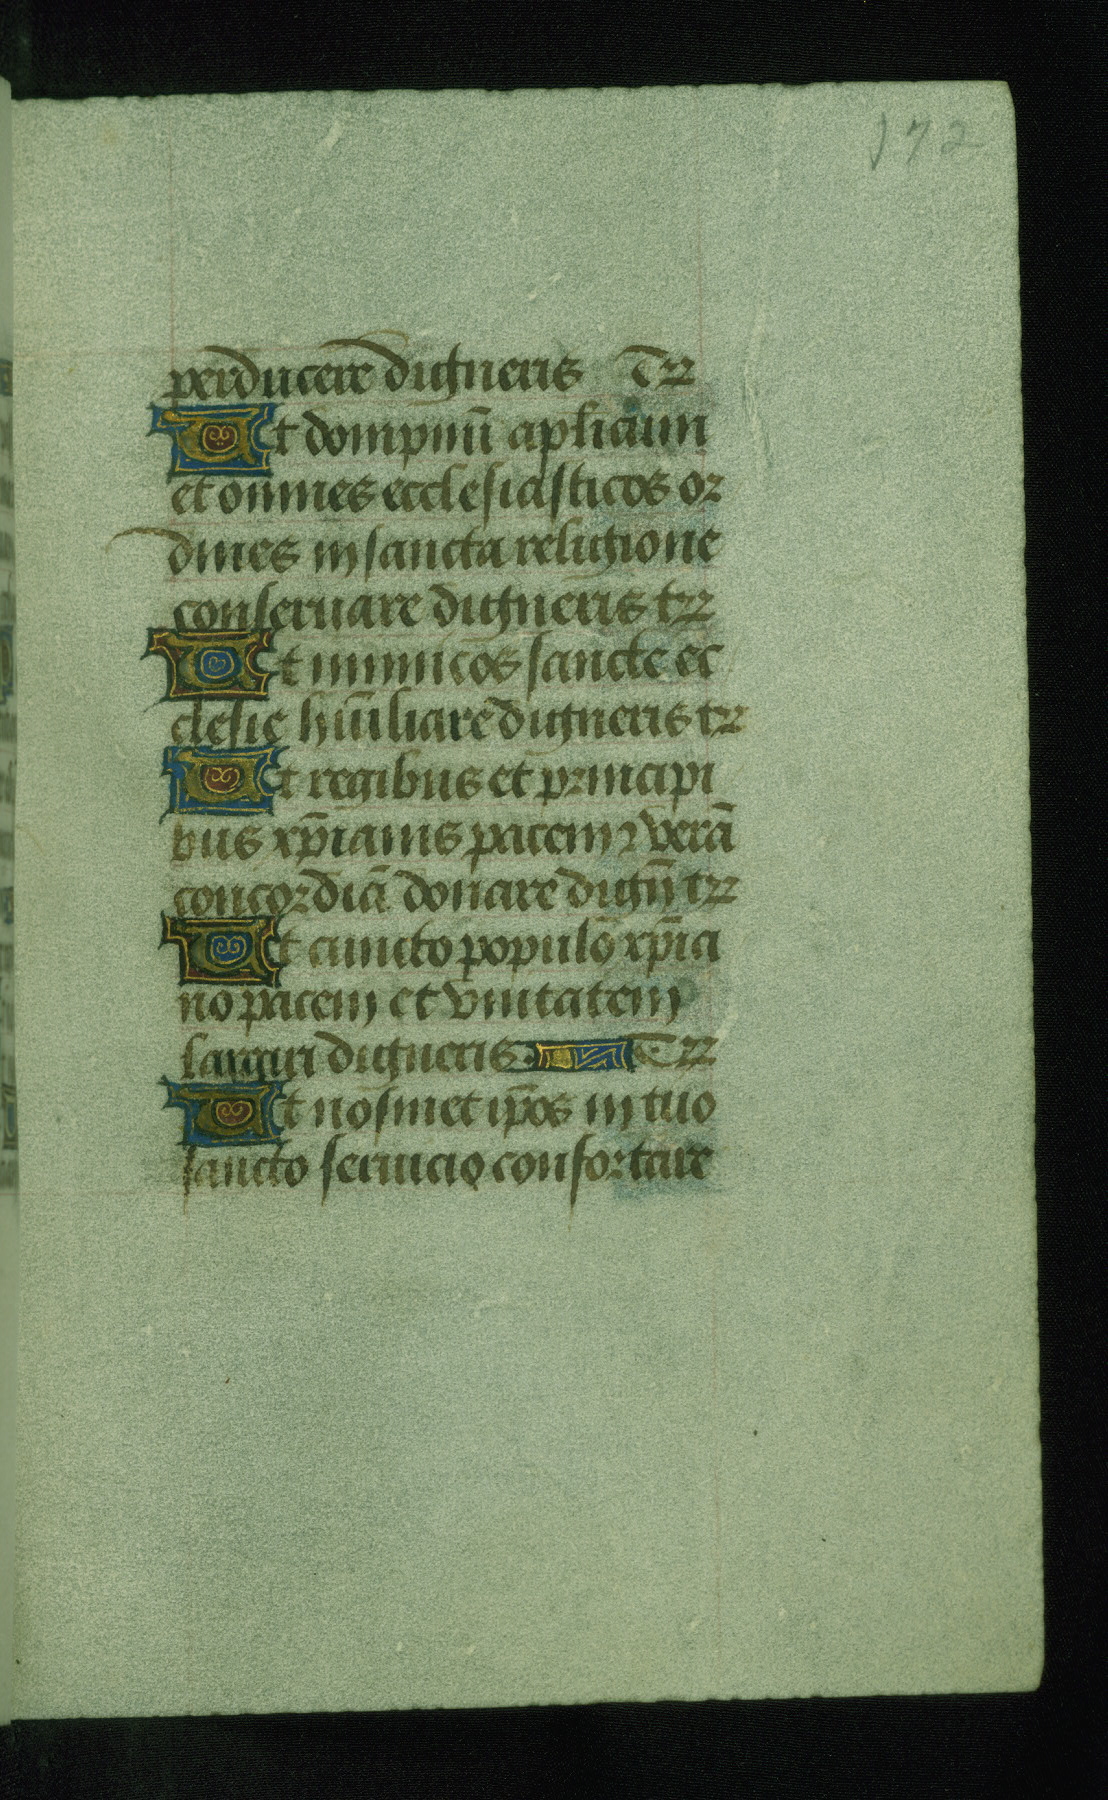 172
perducere digneris Trr
Ut dompnū aplicum
et omnes ecclesiasticos or
dines in sancta religione
conseruare digneris trr
Ut inimicos sancte ec
clesie hūiliare digneris trr
Ut regibus et principi
bus xp̄ianis pacem ⁊ verā
concordiā donare dign̄ trr
Ut cuncto populo xp̄ia
no pacem et vnitatem
largiri digneris Trr
Ut nosmet ip̄os in tuo
sancto seruicio confortare